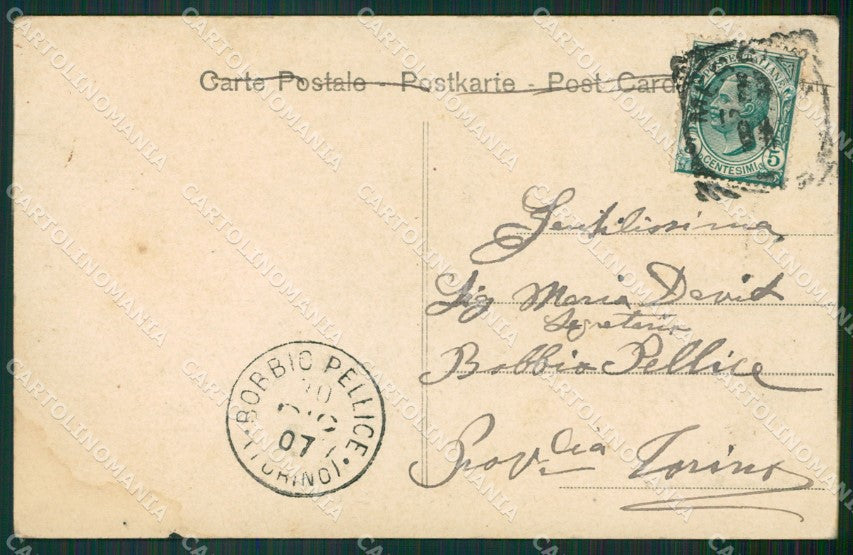 Carte Postale - Postkarte - Post Card
POSTE ITALIANE
CENTESIMI 5
Gentilissima
Sig Maria Davit
Segretaria
Bobbio Pellice
Prov.cia Torino
BOBBIO PELLICE
10
DIC
07
(TORINO)
CARTOLINOMANIA